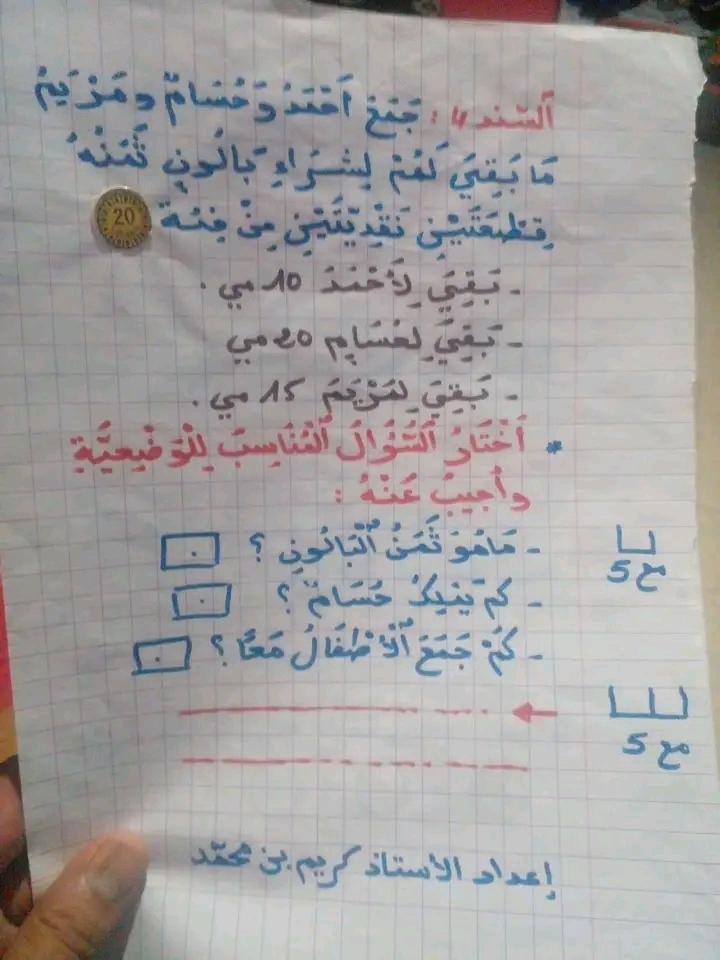 السند 4: جَمَعَ أَحْمَدُ وَحُسَامٌ وَمَرْيَمُ
مَا بَقِيَ لَهُمْ لِشِرَاءِ بَالُونٍ ثَمَنُهُ
قِطْعَتَيْنِ نَقْدِيَّتَيْنِ مِنْ فِئَةِ 20
- بَقِيَ لِأَحْمَدَ 10 مي.
- بَقِيَ لِحُسَامٍ 20 مي
- بَقِيَ لِمَرْيَمَ 15 مي.
* أَخْتَارُ السُّؤَالَ الْمُنَاسِبَ لِلْوَضْعِيَّةِ
وَأُجِيبُ عَنْهُ:
- مَا هُوَ ثَمَنُ الْبَالُونِ؟
مع 5
- كم يَمْلِكُ حُسَامٌ؟
- كَمْ جَمَعَ الْأَطْفَالُ مَعًا؟
مع 5
إعداد الأستاذ كريم بن محمّد